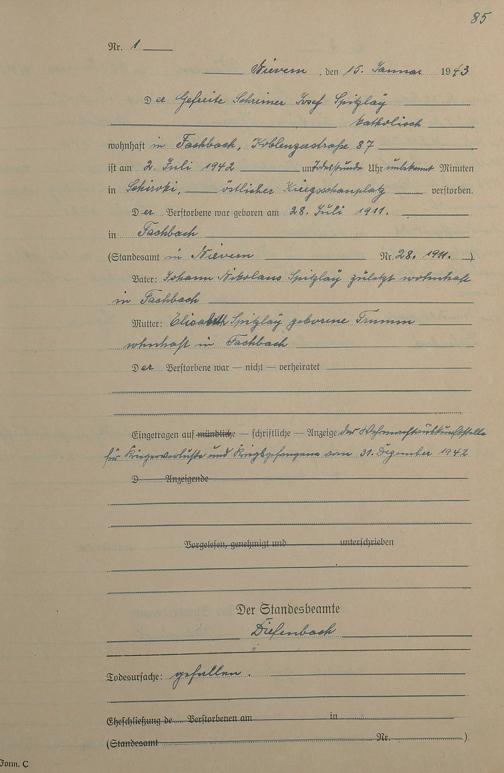 85
Nr. 1
Nievern, den 15. Januar 1943
Der Gefreite Schreiner Josef Spitzlay
katholisch
wohnhaft in Fachbach, Koblenzerstraße 87
ist am 2. Juli 1942 um Todesstunde Uhr unbekannt Minuten
in Schiroki, östlicher Kriegsschauplatz verstorben.
Der Verstorbene war geboren am 28. Juli 1911.
in Fachbach
(Standesamt in Nievern Nr. 28. 1911.)
Vater: Johann Nikolaus Spitzlay zuletzt wohnhaft
in Fachbach
Mutter: Elisabeth Spitzlay geborene Trimm
wohnhaft in Fachbach
Der Verstorbene war — nicht — verheiratet
Eingetragen auf mündliche — schriftliche — Anzeige der Wehrmachtauskunftstelle
für Kriegerverluste und Kriegsgefangene vom 31. Dezember 1942
D Anzeigende
Vorgelesen, genehmigt und unterschrieben
Der Standesbeamte
Diefenbach
Todesursache: gefallen.
Eheschließung de Verstorbenen am in
(Standesamt Nr. )
Form. C